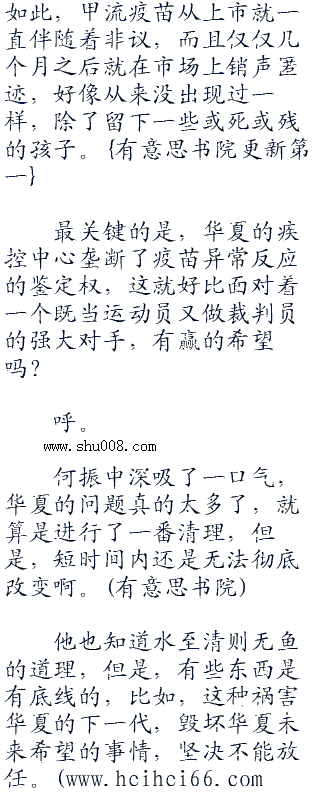 如此，甲流疫苗从上市就一
直伴随着非议，而且仅仅几
个月之后就在市场上销声匿
迹，好像从来没出现过一
样，除了留下一些或死或残
的孩子。{有意思书院更新第
一}
最关键的是，华夏的疾
控中心垄断了疫苗异常反应
的鉴定权，这就好比面对着
一个既当运动员又做裁判员
的强大对手，有赢的希望
吗？
呼。
www.shu008.com
何振中深吸了一口气，
华夏的问题真的太多了，就
算是进行了一番清理，但
是，短时间内还是无法彻底
改变啊。(有意思书院)
他也知道水至清则无鱼
的道理，但是，有些东西是
有底线的，比如，这种祸害
华夏的下一代，毁坏华夏未
来希望的事情，坚决不能放
任。(www.hcihci66.com